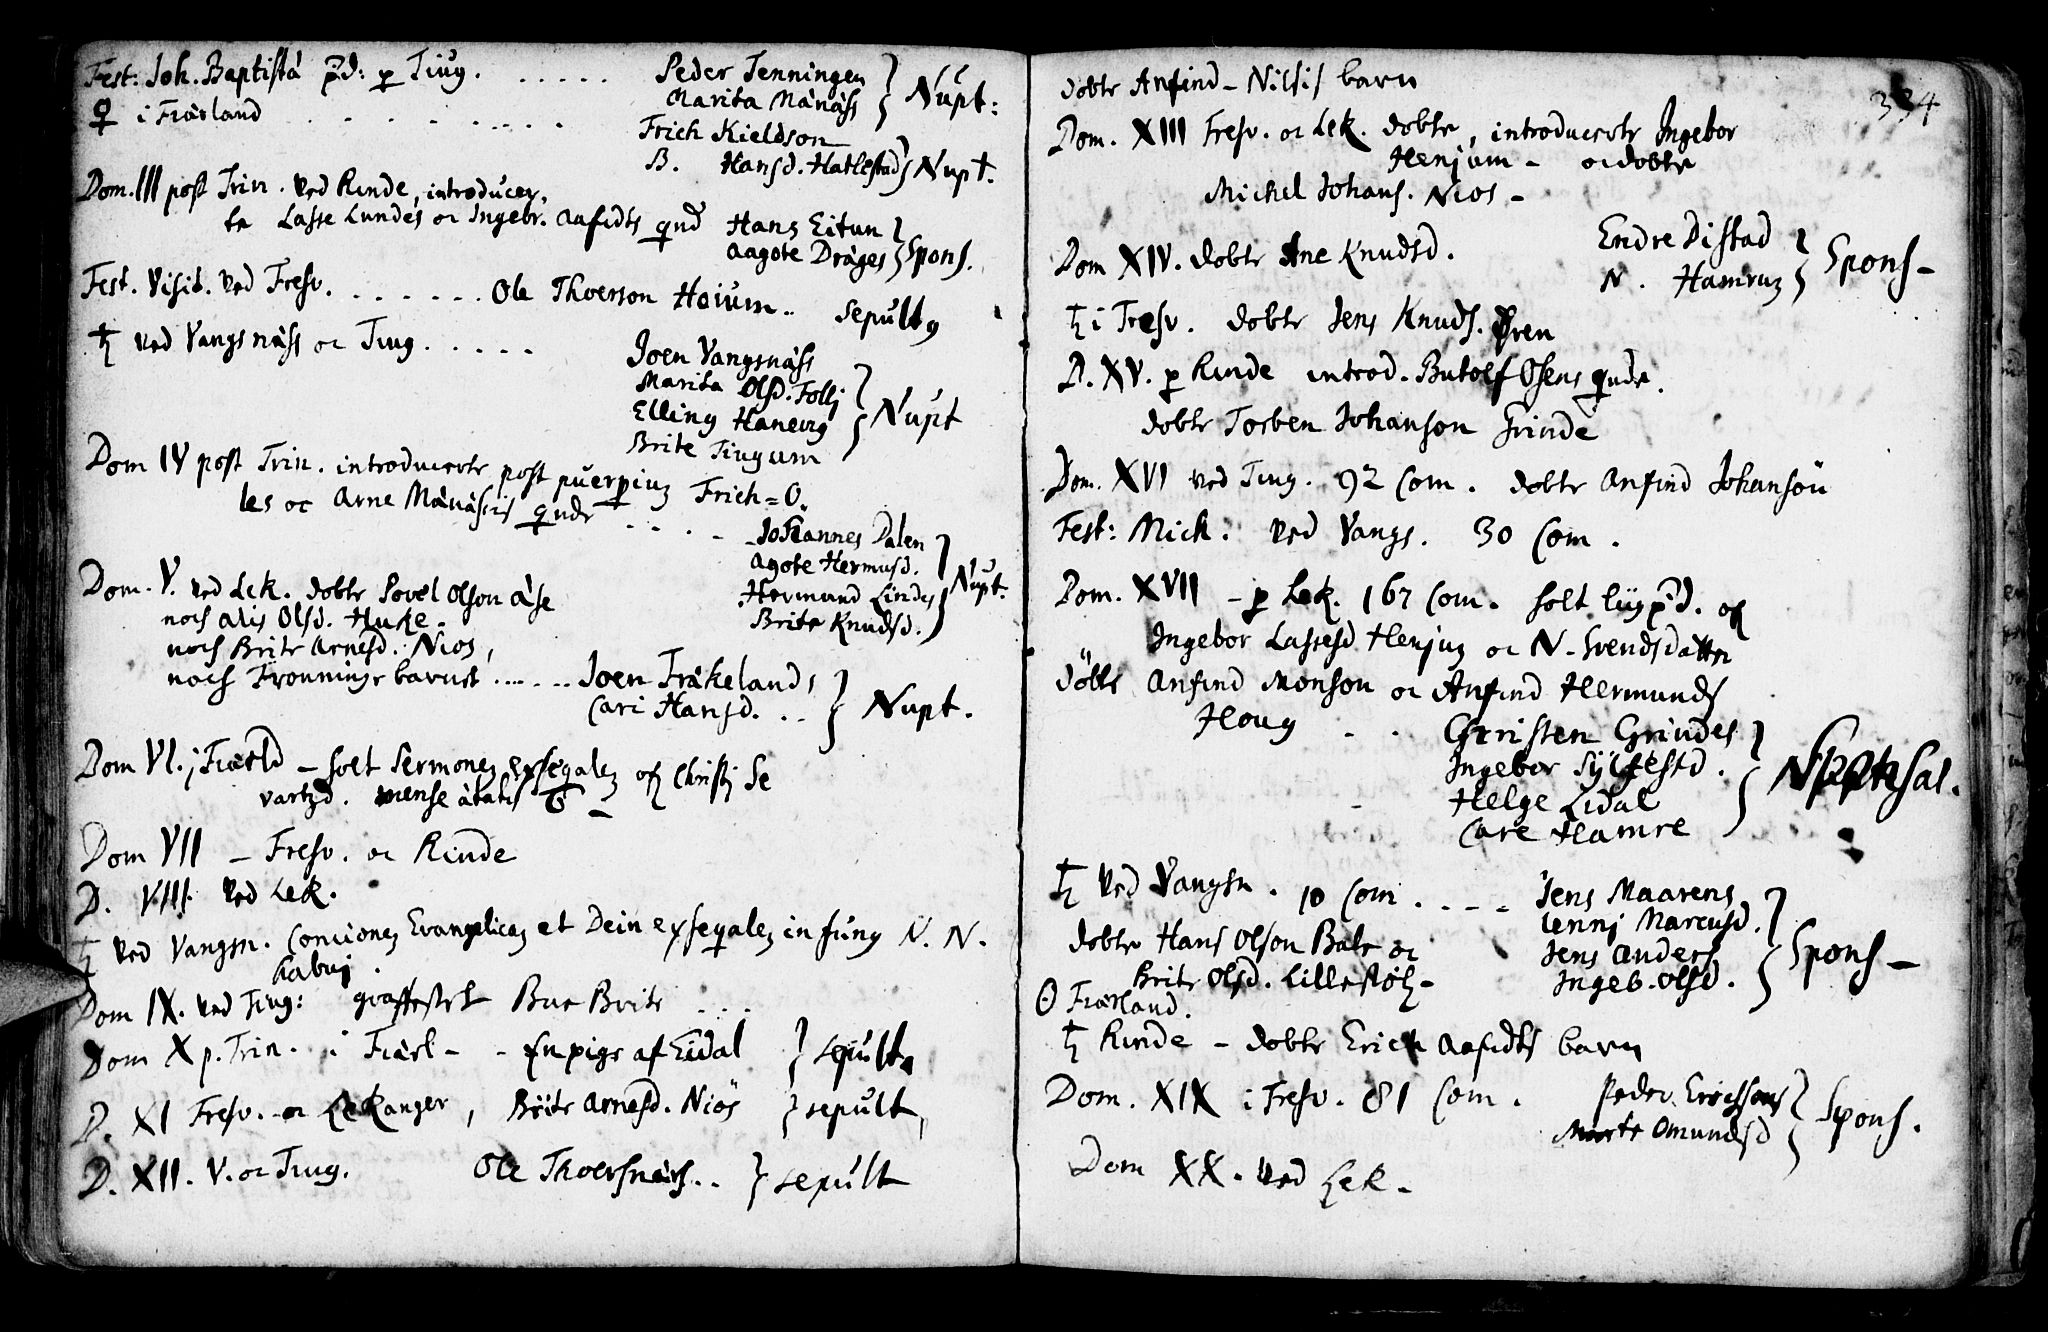 Fest: Joh. Baptistá p̄d: p Tiug. . . . . . Peder Tenningen
Marita Mánáss } Nupt:
♀ i Fiærland . . . . . . . . .
Frich Kieldson
B. Hansd. Hatlestad } Nupt.
Dom. III post Trin. ved Rinde, introducer-
te Lasse Lundes oc Ingebr. Aafidts qnd̄
Hans Eitun
Aagote Dráges } Spons.
Fest. Visit. ved Fresv. . . . . . . . Ole Thoerson Hoium.. sepult9
♄ ved Vangsnáss oc Tiug. . . . . .
Joen Vangsnáss
Marita Olsd. Follj
Elling Hanevig
Brite Tiugum } Nupt
Dom IV post Trin. introducerte post puerpium Frich=O.
les oc Arne Mánásis qnde . . . . -
Johannes Dalen
Agote Hermusd.
Hermund Lindes
Brite Knudsd. } Nupt.
Dom. V. ved Lek. dobte Povel Olson áse
noch Alis Olsd. Huke.
noch Brite Arnesd. Nios,
noch Fronninge barnet . . . . . . Joen Frákelands
Cari Hansd. . . } Nupt.
Dom VI. i Fiærld - holt Sermonem exseqalem of Christj Se
vartzd. mense átatis 6 -
Dom VII - Fresv. oc Rinde
D. VIII. ved Lek.
♄ ved Vangsn. Concionem Evangelicam et Dein exseqalem in fung N. N.
Dom IX. ved Tiug: graffestet Bue Brite . . . .
Dom X p. Trin. i Fiárl - - En pige af Eidal } sepult.
D. XI Fresv. oc Lekanger, Brite Arnesd. Niös } sepult,
D. XII. V. oc Tiug. Ole Thoersnæs. . } sepult
334
dobte Anfind - Nilsis barn
Dom. XIII Fresv. oc Lek. dobte, introducerte Ingebor
Henjum - oc dobte
Michel Johans. Nios -
Dom XIV. dobte Ane Knudsd.
Endre Distad
N. Hamrum } Spons -
♄ i Fresv. dobte Jens Knuds. Øren
D. XV. p Rinde introd. Butolf Osens qnde.
dobte Torben Johanson Grinde
Dom. XVI ved Tiug. 92 Com. dobte Anfind Johansön
Fest: Mich. ved Vangs. 30 Com.
Dom. XVII - p Lek. 167 Com. holt lig p̄d. of
Ingebor Lassesd Henjum oc N. Svendsdatter
döbte Anfind Monson oc Anfind Hermunds
Houg . .
Christen Grindes
Ingebor Sylfestd.
Helge Lidal
Care Hamre }
♄ ved Vangsn. 10 Com . . - -
Jens Maarens
Lennj Marcusd.
dobte Hans Olson Bale oc
Brite Olsd. Lillestöl -
Jens Anders
Ingeb. Olsd. } Spons -
☉ Fiærland.
♄ Rinde - dobte Erich Aafidts barn
Dom. XIX i Fresv. 81 Com.
Peder Ericssons
Marte Omundsd } Spons.
Dom XX. ved Lek.